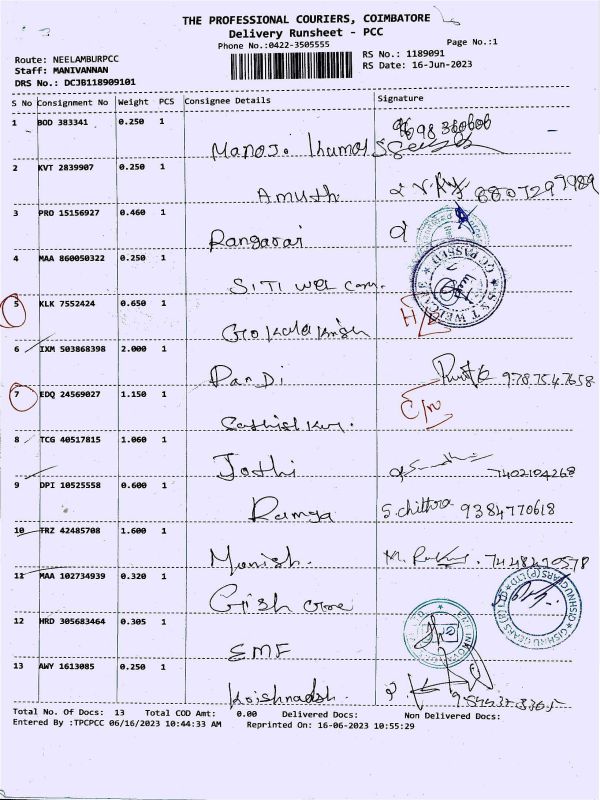 THE PROFESSIONAL COURIERS, COIMBATORE
Delivery Runsheet - PCC
Phone No.:0422-3505555
Page No.:1
Route: NEELAMBURPCC
RS No.: 1189091
Staff: MANIVANNAN
RS Date: 16-Jun-2023
DRS No.: DCJB118909101
S No Consignment No Weight PCS Consignee Details Signature
1 BOD 383341 0.250 1
Manoj. Kumar
2 KVT 2839907 0.250 1
Amuth 8807297989
3 PRO 15156927 0.460 1
Rangarai
4 MAA 860050322 0.250 1
SITI wel com.
5 KLK 7552424 0.650 1
Gokulakrish
6 IXM 503868398 2.000 1
Pandi 9787547658
7 EDQ 24569027 1.150 1
C/n
Sathish Kur.
8 TCG 40517815 1.060 1
Jothi 7402104268
9 DPI 10525558 0.600 1
Ramya S.chithra 9384770618
10 TRZ 42485708 1.600 1
Manish. 7448470578
11 MAA 102734939 0.320 1
Grish
12 HRD 305683464 0.305 1
EMF
13 AWY 1613085 0.250 1
Krishnadsh.
Total No. Of Docs: 13 Total COD Amt: 0.00 Delivered Docs: Non Delivered Docs:
Entered By :TPCPCC 06/16/2023 10:44:33 AM Reprinted On: 16-06-2023 10:55:29